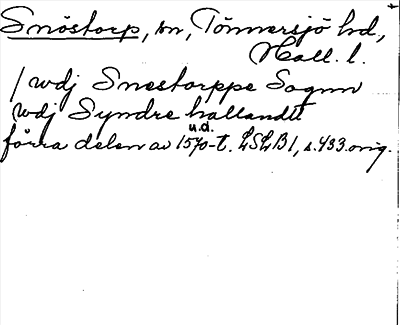 Snöstorp, sn, Tönnersjö hd,
Hall. l.
/ wdj Snestorppe Sognn
wdj Syndre hallandtt
u.d.
förra delen av 1570-t. LSLB 1, s. 433. orig.